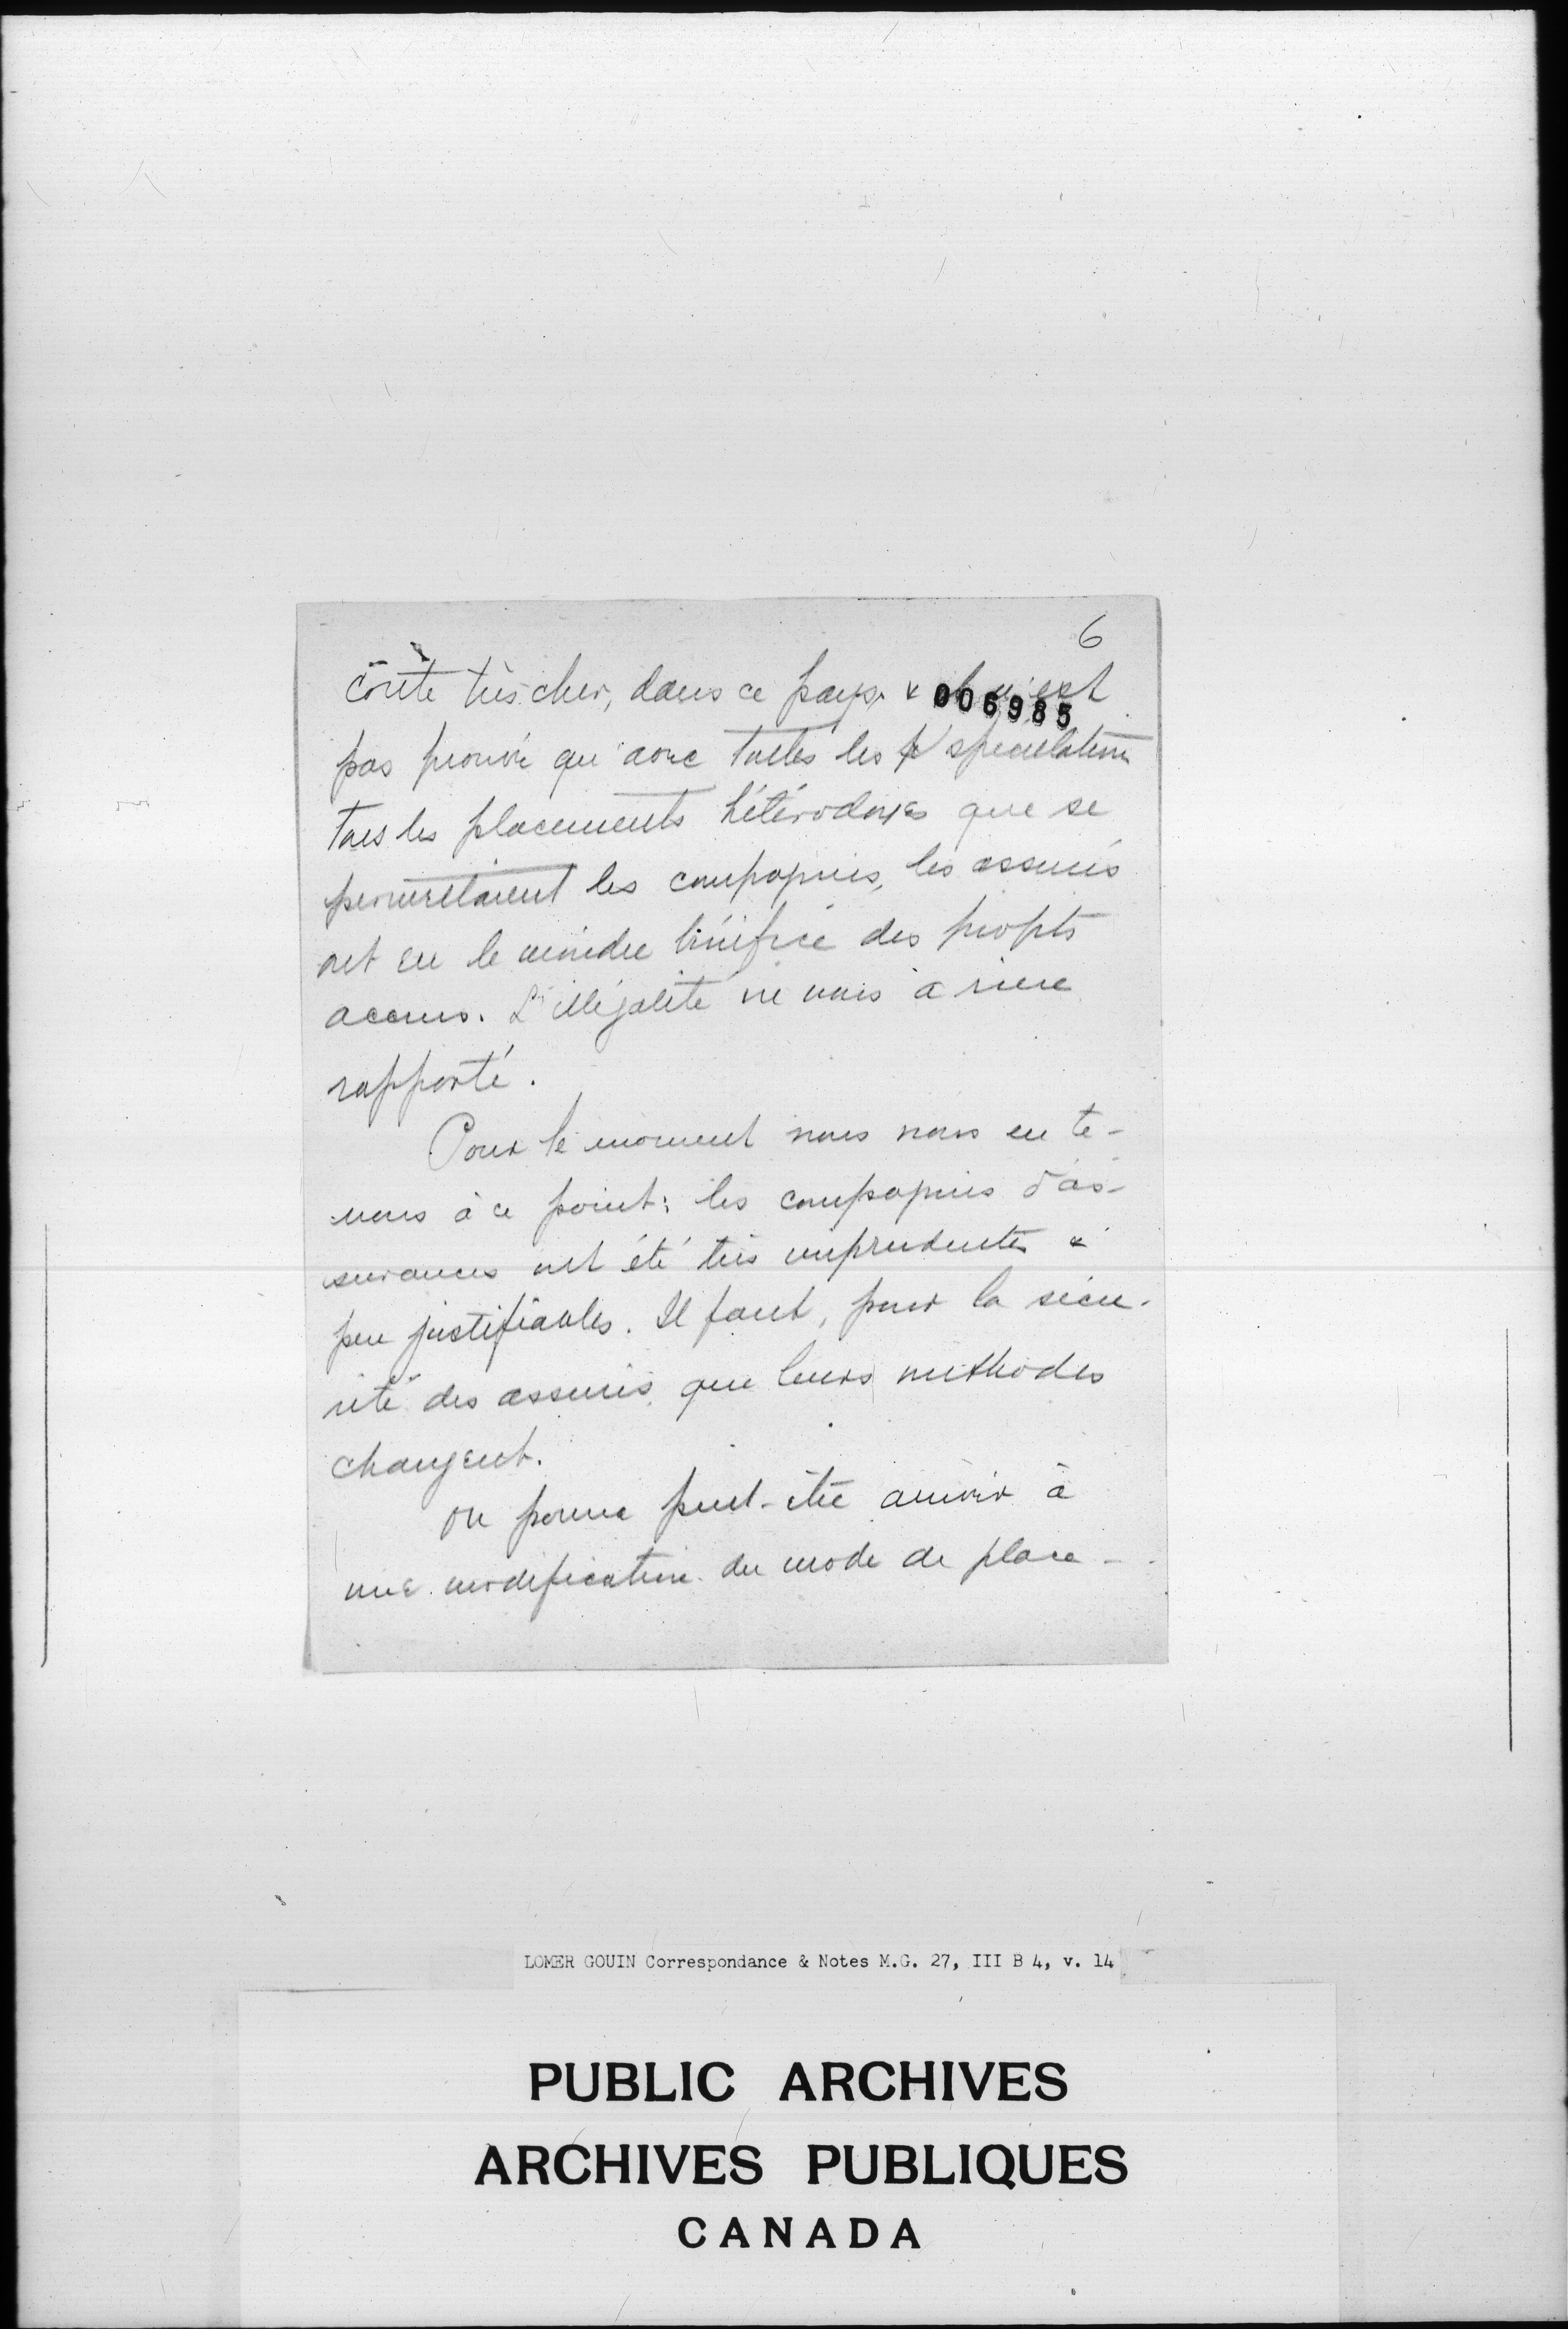 6
coûte très cher, dans ce pays & il n'est
006985
pas prouvé qu'avec toutes les spéculations
tous les placements hétérodoxes que se
permettaient les compagnies, les assurés
ont eu le moindre bénéfice des profits
accrus. L'illégalité ne nous a rien
rapporté.
Pour le moment nous nous en te-
nons à ce point: les compagnies d'as-
surances ont été très imprudentes &
peu justifiables. Il faut, pour la sécu-
rité des assurés, que leurs méthodes
changent.
On pourra peut-être arriver à
une modification du mode de place-
LOMER GOUIN Correspondance & Notes M.G. 27, III B 4, v. 14
PUBLIC ARCHIVES
ARCHIVES PUBLIQUES
CANADA